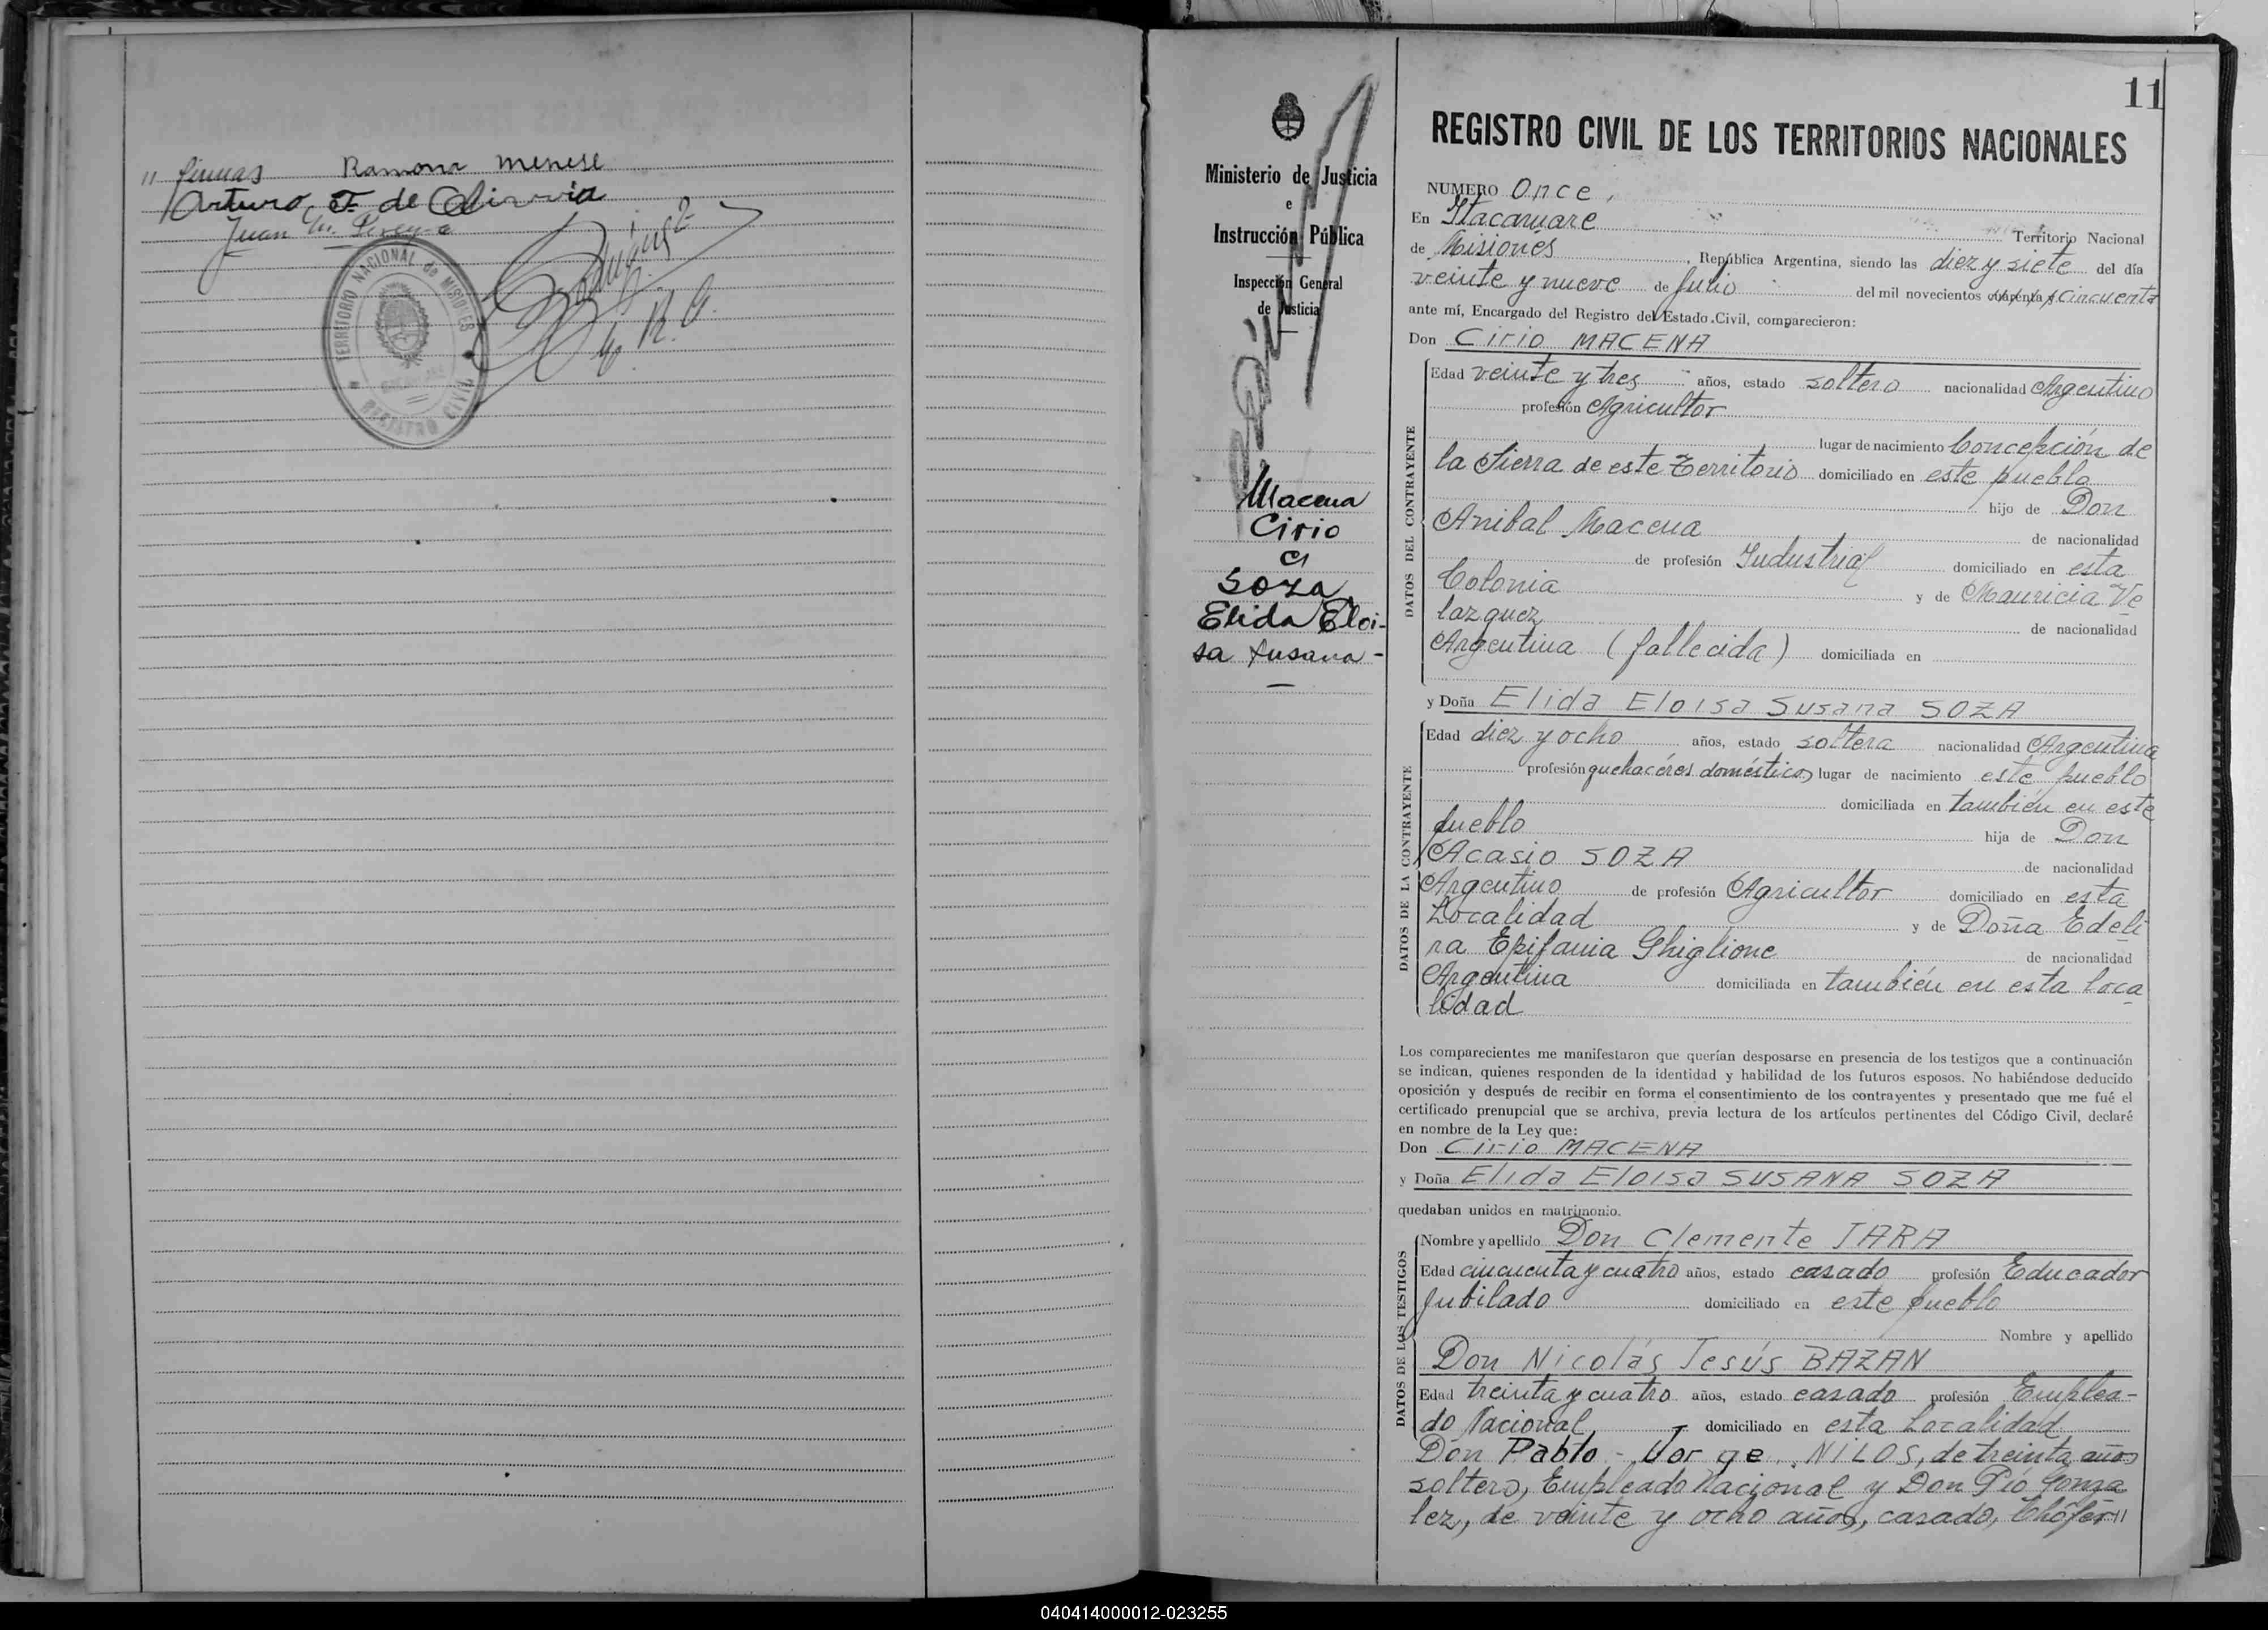 " firmas Ramona Menese
Arturo F. de Olivera
Juan M.
TERRITORIO NACIONAL de MISIONES
REGISTRO CIVIL
E. R. C.
11
Ministerio de Justicia
e
Instrucción Pública
Inspección General
de Justicia
Macena
Cirio
c/
Soza,
Elida Eloi-
sa Susana -
REGISTRO CIVIL DE LOS TERRITORIOS NACIONALES
NUMERO Once,
En Itacaruare Territorio Nacional
de Misiones, República Argentina, siendo las diez y siete del día
veinte y nueve de Julio del mil novecientos cuarenta y cincuenta
ante mí, Encargado del Registro del Estado Civil, comparecieron:
Don Cirio MACENA
DATOS DEL CONTRAYENTE
Edad veinte y tres años, estado soltero nacionalidad Argentino
profesión Agricultor
lugar de nacimiento Concepción de
la Sierra de este Territorio domiciliado en este pueblo
hijo de Don
Anibal Macena de nacionalidad
de profesión Industrial domiciliado en esta
Colonia y de Mauricia Ve
lazquez de nacionalidad
Argentina (fallecida) domiciliada en
y Doña Elida Eloisa Susana SOZA
DATOS DE LA CONTRAYENTE
Edad diez y ocho años, estado soltera nacionalidad Argentina
profesión quehacéres doméstico, lugar de nacimiento este pueblo
domiciliada en también en este
pueblo hija de Don
Acasio SOZA de nacionalidad
Argentino de profesión Agricultor domiciliado en esta
Localidad y de Doña Edeli
ra Epifania Ghiglione de nacionalidad
Argentina domiciliada en también en esta loca
lidad
Los comparecientes me manifestaron que querían desposarse en presencia de los testigos que a continuación
se indican, quienes responden de la identidad y habilidad de los futuros esposos. No habiéndose deducido
oposición y después de recibir en forma el consentimiento de los contrayentes y presentado que me fué el
certificado prenupcial que se archiva, previa lectura de los artículos pertinentes del Código Civil, declaré
en nombre de la Ley que:
Don Cirio MACENA
y Doña Elida Eloisa SUSANA SOZA
quedaban unidos en matrimonio.
DATOS DE LOS TESTIGOS
Nombre y apellido Don Clemente JARA
Edad cincuenta y cuatro años, estado casado profesión Educador
Jubilado domiciliado en este pueblo
Nombre y apellido
Don Nicolás Jesús BAZAN
Edad treinta y cuatro años, estado casado profesión Emplea-
do Nacional domiciliado en esta Localidad
Don Pablo - Jorge NILOS, de treinta años
soltero, Empleado Nacional y Don Pío Gonza
lez, de veinte y ocho años, casado, Chófer "
040414000012-023255